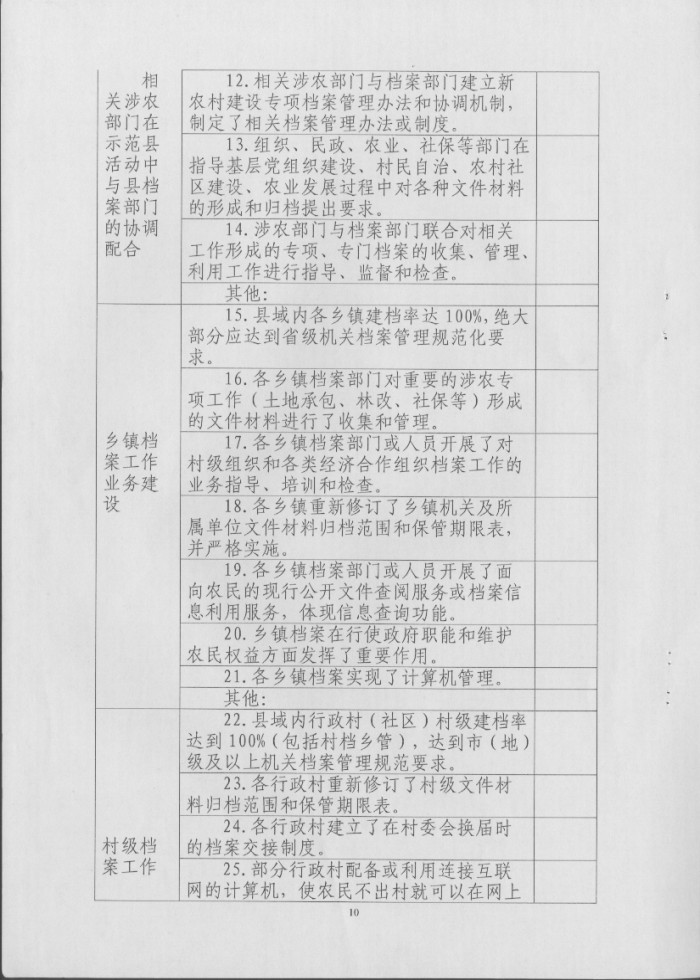 相
关涉农
部门在
示范县
活动中
与县档
案部门
的协调
配合
12.相关涉农部门与档案部门建立新
农村建设专项档案管理办法和协调机制，
制定了相关档案管理办法或制度。
13.组织、民政、农业、社保等部门在
指导基层党组织建设、村民自治、农村社
区建设、农业发展过程中对各种文件材料
的形成和归档提出要求。
14.涉农部门与档案部门联合对相关
工作形成的专项、专门档案的收集、管理、
利用工作进行指导、监督和检查。
其他：
乡镇档
案工作
业务建
设
15.县域内各乡镇建档率达100%，绝大
部分应达到省级机关档案管理规范化要
求。
16.各乡镇档案部门对重要的涉农专
项工作（土地承包、林改、社保等）形成
的文件材料进行了收集和管理。
17.各乡镇档案部门或人员开展了对
村级组织和各类经济合作组织档案工作的
业务指导、培训和检查。
18.各乡镇重新修订了乡镇机关及所
属单位文件材料归档范围和保管期限表，
并严格实施。
19.各乡镇档案部门或人员开展了面
向农民的现行公开文件查阅服务或档案信
息利用服务，体现信息查询功能。
20.乡镇档案在行使政府职能和维护
农民权益方面发挥了重要作用。
21.各乡镇档案实现了计算机管理。
其他：
村级档
案工作
22.县域内行政村（社区）村级建档率
达到100%（包括村档乡管），达到市（地）
级及以上机关档案管理规范要求。
23.各行政村重新修订了村级文件材
料归档范围和保管期限表。
24.各行政村建立了在村委会换届时
的档案交接制度。
25.部分行政村配备或利用连接互联
网的计算机，使农民不出村就可以在网上
10